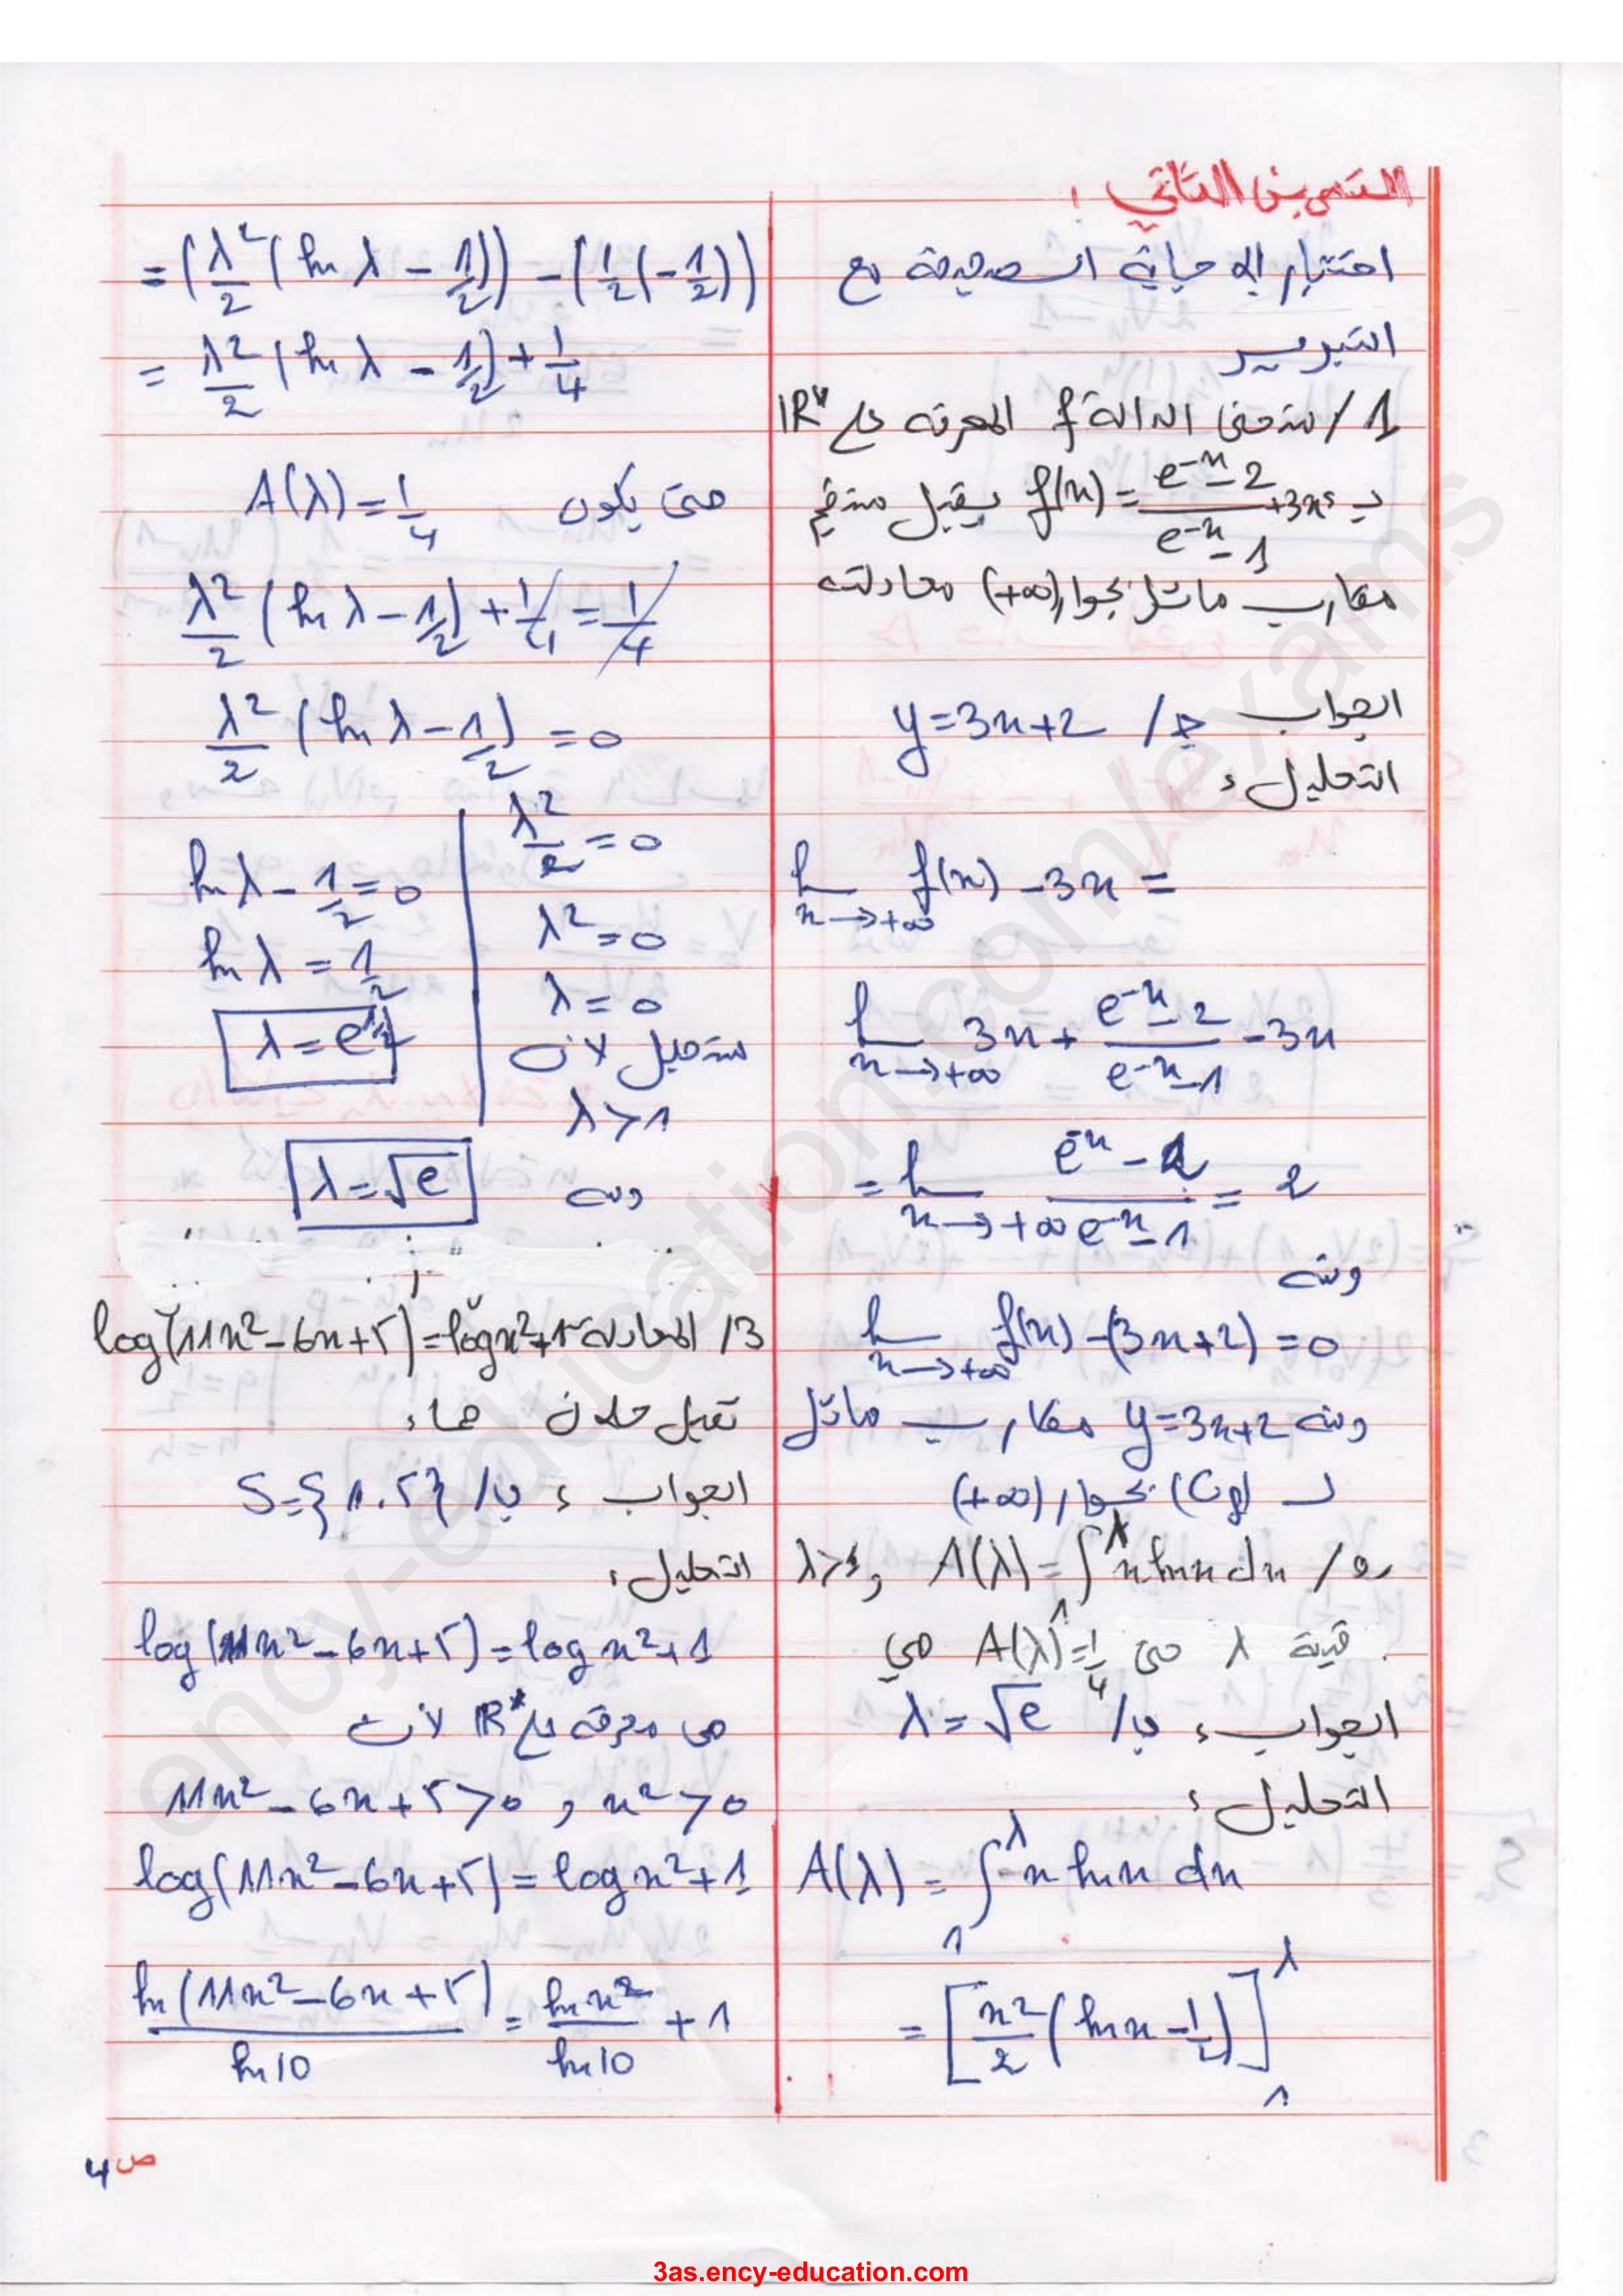 التمرين الثاني :
اختيار الإجابة الصحيحة مع
التبرير
1/ منحنى الدالة f المعرفة على IR*
بـ f(x) = (e^-x - 2)/(e^-x - 1) + 3x يقبل مستقيم
مقارب مائل بجوار (+∞) معادلته
الجواب ج/ y = 3x + 2
التعليل :
lim x→+∞ f(x) - 3x =
lim x→+∞ 3x + (e^-x - 2)/(e^-x - 1) - 3x
= lim x→+∞ (e^-x - 2)/(e^-x - 1) = 2
ومنه
lim x→+∞ f(x) - (3x + 2) = 0
ومنه y = 3x + 2 مقارب مائل
لـ (Cf) بجوار (+∞)
2/ A(λ) = ∫_1^λ x ln x dx و λ > 1
قيمة λ حتى A(λ) = 1/4 هي
الجواب : ب/ λ = √e
التعليل :
A(λ) = ∫_1^λ x ln x dx
= [x²/2 (ln x - 1/2)]_1^λ
= (λ²/2 (ln λ - 1/2)) - (1/2 (-1/2))
= λ²/2 (ln λ - 1/2) + 1/4
حتى يكون A(λ) = 1/4
λ²/2 (ln λ - 1/2) + 1/4 = 1/4
λ²/2 (ln λ - 1/2) = 0
λ²/2 = 0
λ² = 0
λ = 0
مستحيل لأن
λ > 1
ln λ - 1/2 = 0
ln λ = 1/2
λ = e^1/2
ومنه λ = √e
3/ المعادلة log(11x² - 6x + 5) = log x² + 1
تقبل حلان هما :
الجواب : ب/ S = {1.5}
التعليل :
log(11x² - 6x + 5) = log x² + 1
هي معرفة على IR* لأن
11x² - 6x + 5 > 0 و x² > 0
log(11x² - 6x + 5) = log x² + 1
ln(11x² - 6x + 5)/ln 10 = ln x²/ln 10 + 1
ص 4
ency-education.com/exams
3as.ency-education.com